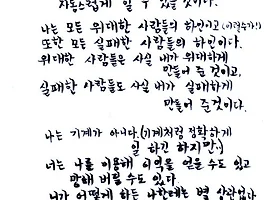 자동스럽게 할 수 있을 것이다.
나는 모든 위대한 사람들의 하인이고
또한 모든 실패한 사람들의 하인이다.
위대한 사람들은 사실 내가 위대하게
만들어 준 것이고,
실패한 사람들도 사실 내가 실패하게
만들어 준 것이다.
나는 기계가 아니다. (기계처럼 정확하게
일 하긴 하지만..)
너는 나를 이용해 이익을 얻을 수도 있고
망해 버릴 수도 있다.
내가 어떻게 하는 나한테는 별 상관없다